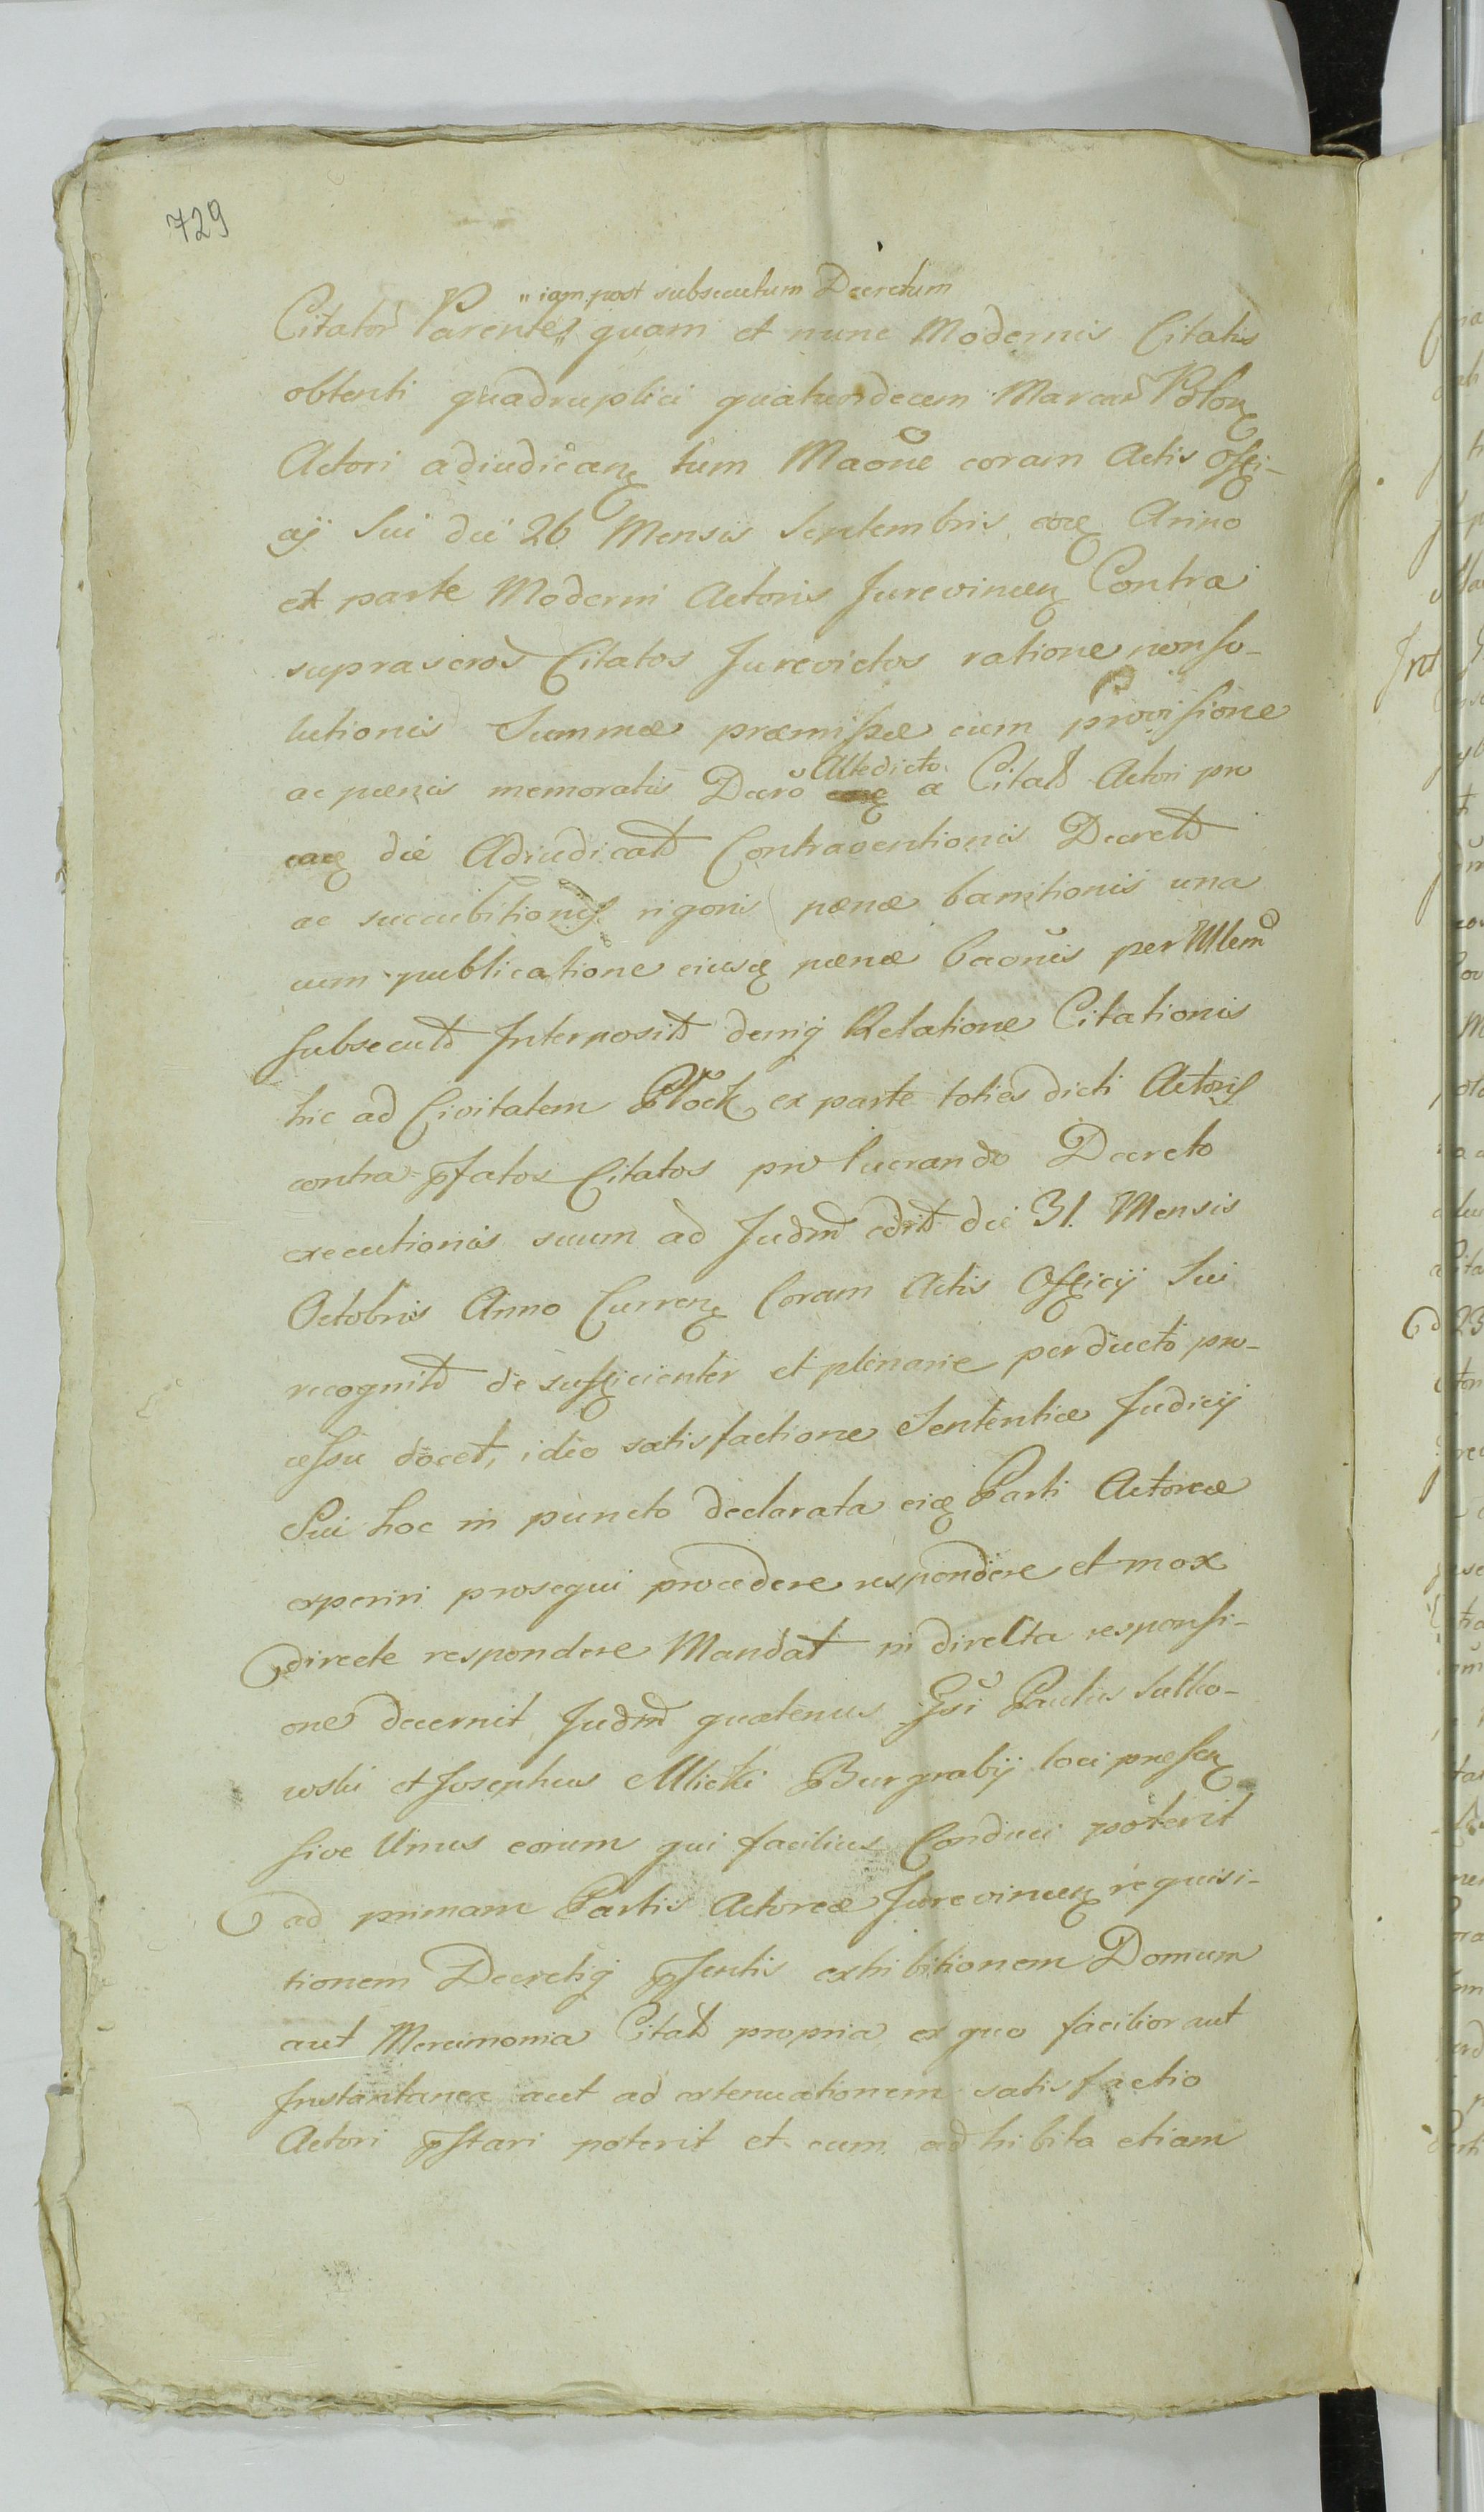 729
" iam post subsecutum Decretum
Citator̃ Parentes " quam et nunc Modernis Citatis
obtenti quadruplici quatuordecem Marcar̃ Polon
Actori adiudican tum Maoñe coram Actis Offi-
cÿ Sui die 26 Mensis Septembris eoe Anno
ex parte Moderni Actoris Jurevincen Contra
suprascros Citatos Jurevictos ratione non so-
lutionis Summæ præmissæ cum provisione
ac pœnis memoratis Decrõ Altedicto a Citatis Actori pro
eae die Adiudicat Contraventionis Decreti
ac succubitionis rigoris pœnæ banitionis una
cum publicatione eiusq pœnæ baoñis per Mlem
subsecut Interposit deniq Relatione Citationis
hic ad Civitatem Płock ex parte toties dicti Actoris
contra pfatos Citatos pro lucrando Decreto
executionis suum ad Judm edit die 31. Mensis
Octobris Anno Curren Coram Actis Officÿ Sui
recognit de sufficienter et plenarie perducto pro-
cessu docet, ideo satisfactione Sententiæ Judicÿ
Sui hoc in puncto declarata eie Parti Actoreæ
experiri prosequi procedere respondere et mox
directe respondere Mandat in directa responsi-
one decernit Judm quatenus Gsi Paulus Sutko-
wski et Josephus Mlicki Burgrabÿ loci præsen
sive Unus eorum qui facilius Conduci poterit
ad primam Partis Actoreæ Jurevincen requisi-
tionem Decretiq psentis exhibitionem Domum
aut Mercimonia Citat propria ex quo facilior aut
Instantanea aut ad extenuationem satisfactio
Actori pstari poterit et cum adhibita etiam